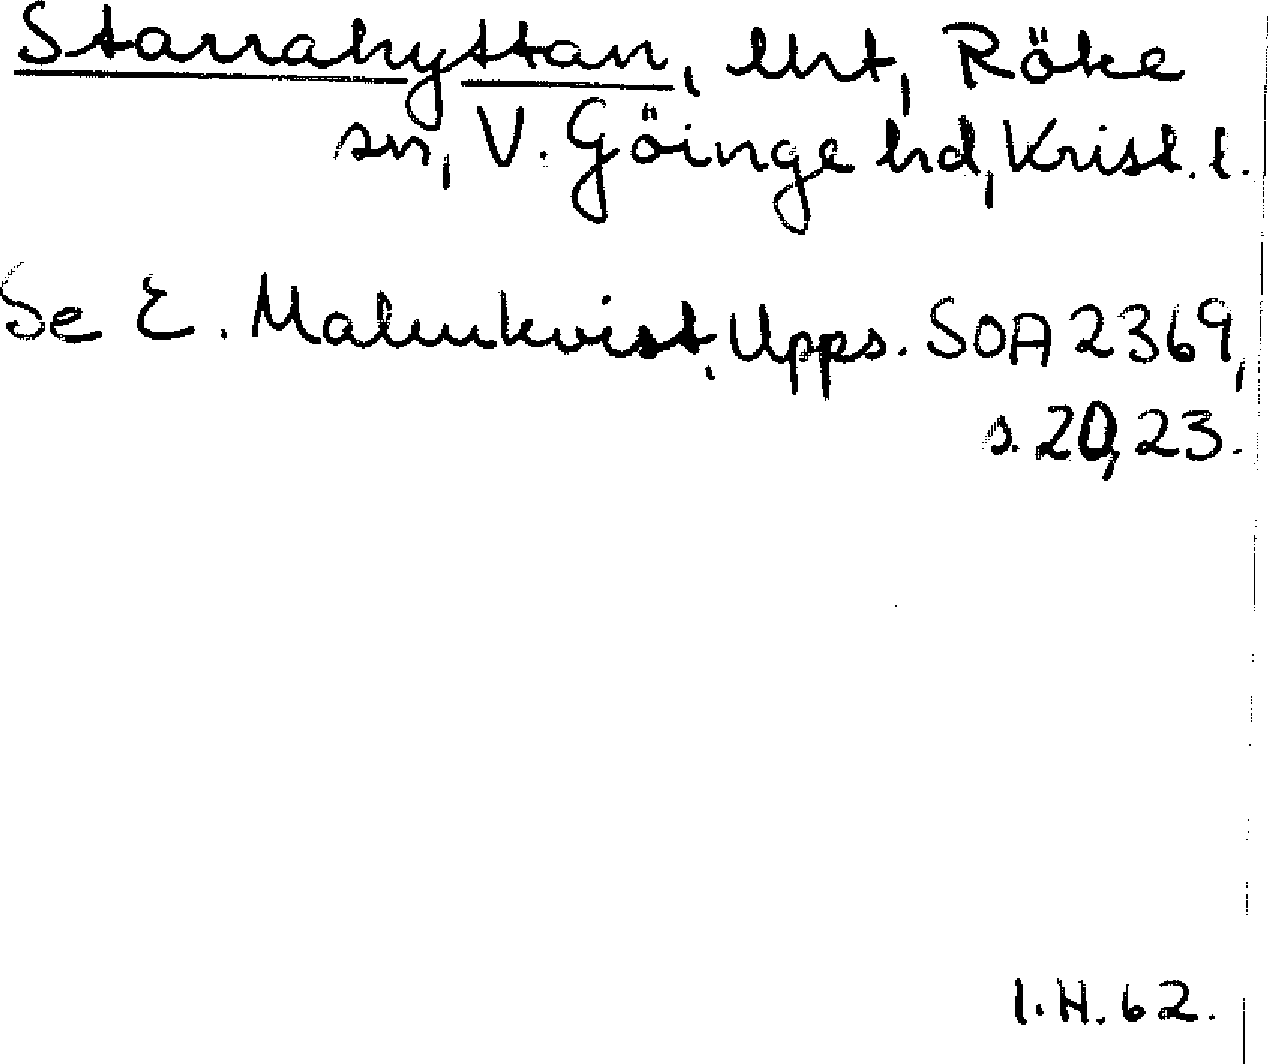 Starrahyttan, lht, Röke
sn, V. Göinge hd, Krist. l.
Se E. Malmkvist, Upps. SOA 2369,
s. 20, 23.
I.H. 62.